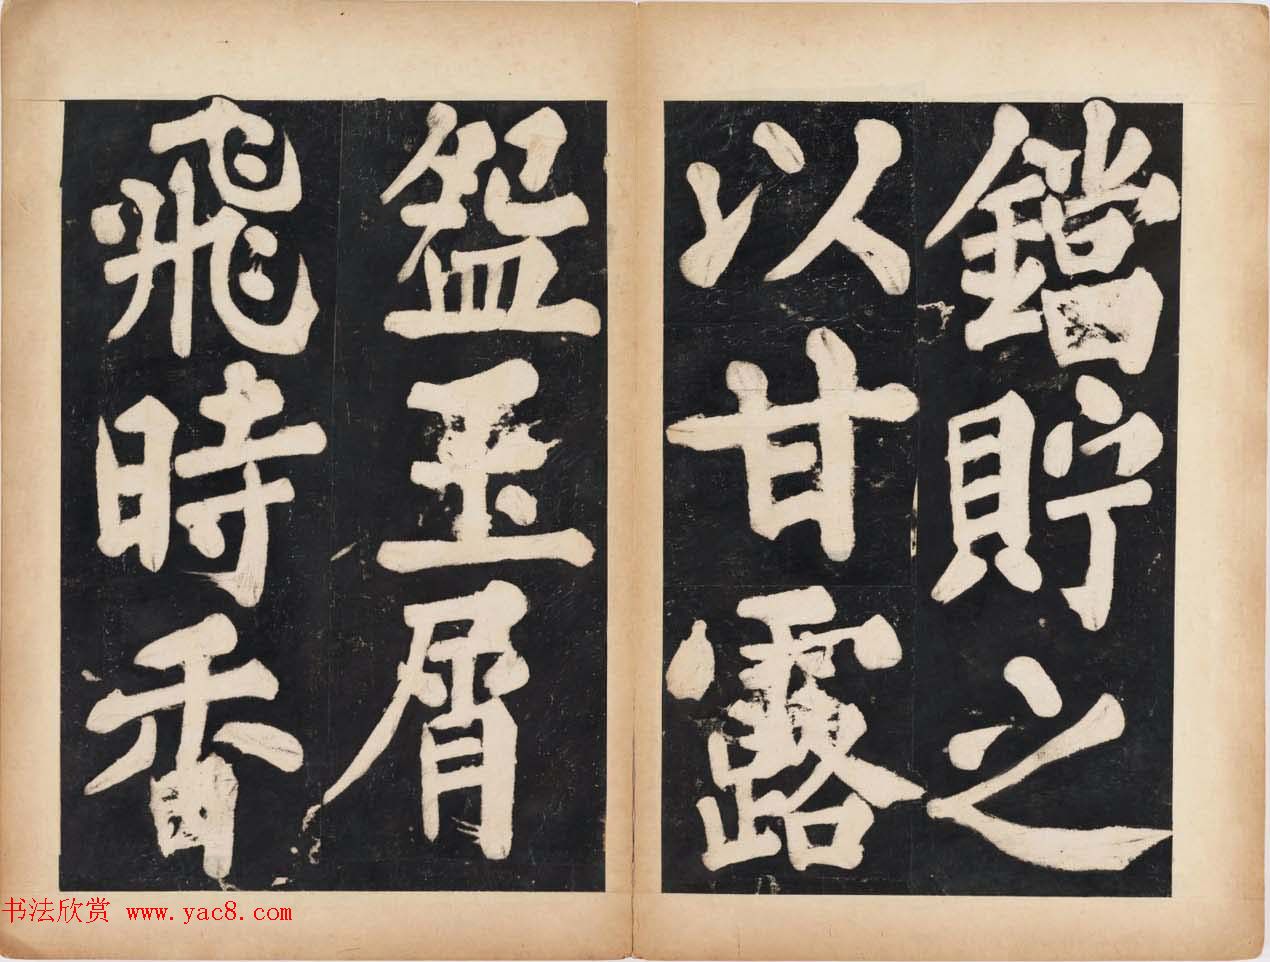 鐺貯之
以甘露
盌玉屑
飛時香
书法欣赏 www.yac8.com